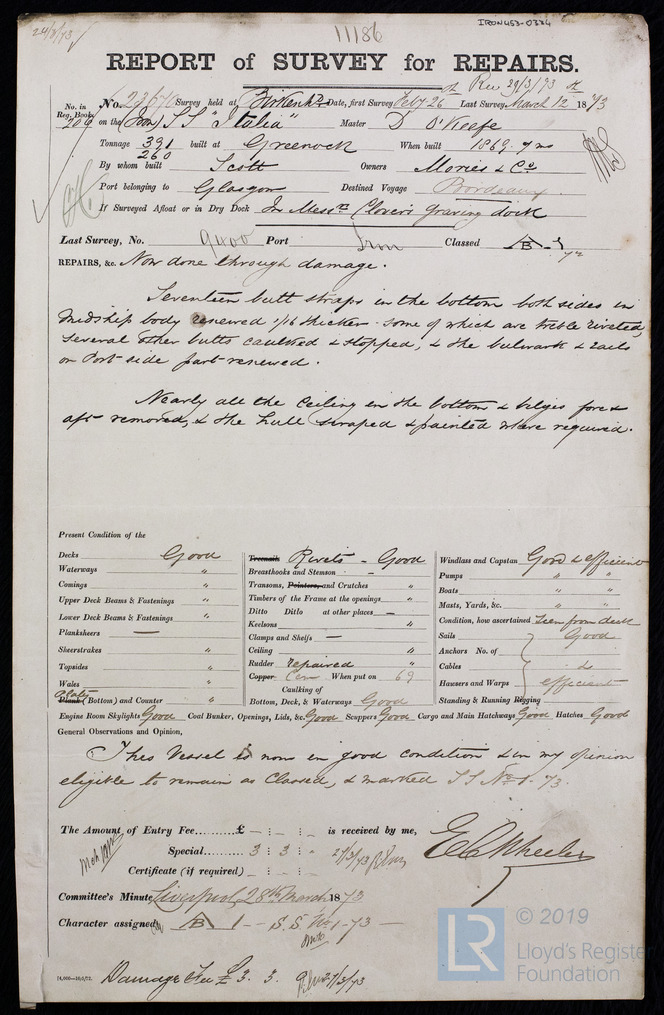 24/3/73
11186
IRON453-0334
REPORT of SURVEY for REPAIRS.
Rec 29/3/73
No. in Reg. Book
No. Survey held at Birkenhd Date, first Survey Feby 26 Last Survey, March 12 1873
209 on the (Iron) SS "Italia" Master D O'Keefe
Tonnage 391 built at Greenock When built 1869.
260
By whom built Scott Owners Mories & Co
Port belonging to Glasgow Destined Voyage Bordeaux
If Surveyed Afloat or in Dry Dock In Messrs Clover's Graving dock
Last Survey, No. 9400 Port Iron Classed B
REPAIRS, &c. Now done through damage.
Seventeen butt straps in the bottom both sides in
Midship body renewed 1/16 thicker - some of which are treble riveted,
several other butts caulked & stopped, & the bulwark & rails
on Port side part renewed.
Nearly all the Ceiling in the bottom & bilges fore &
aft removed, & the hull scraped & painted where required.
Present Condition of the
Decks Good
Waterways "
Comings "
Upper Deck Beams & Fastenings "
Lower Deck Beams & Fastenings "
Planksheers —
Sheerstrakes "
Topsides "
Wales "
Plates
Plank (Bottom) and Counter "
Treenails Rivets - Good
Breasthooks and Stemson "
Transoms, Pointers, and Crutches "
Timbers of the Frame at the openings "
Ditto Ditto at other places —
Keelsons "
Clamps and Shelfs —
Ceiling "
Rudder repaired
Copper Cem. When put on 69
Caulking of
Bottom, Deck, & Waterways Good
Windlass and Capstan Good & efficient
Pumps " "
Boats " "
Masts, Yards, &c. " "
Condition, how ascertained Seen from deck
Sails Good
Anchors No. of
Cables do
Hawsers and Warps efficient
Standing & Running Rigging
Engine Room Skylights Good Coal Bunker, Openings, Lids, &c. Good Scuppers Good Cargo and Main Hatchways Good Hatches Good
General Observations and Opinion,
This Vessel is now in good condition & in my opinion
eligible to remain as Classed, & marked SS No 1-73.
The Amount of Entry Fee..........£ – : – : – is received by me,
Special........ 3 : 3 : – 27/3/73
Certificate (if required) – : – : –
E C Wheeler
Committee's Minute Liverpool, 28th March 1873
Character assigned B 1 – S.S. No 1-73 —
Damage Fee £3. 3. 27/3/73
© 2019
LR
Lloyd's Register
Foundation